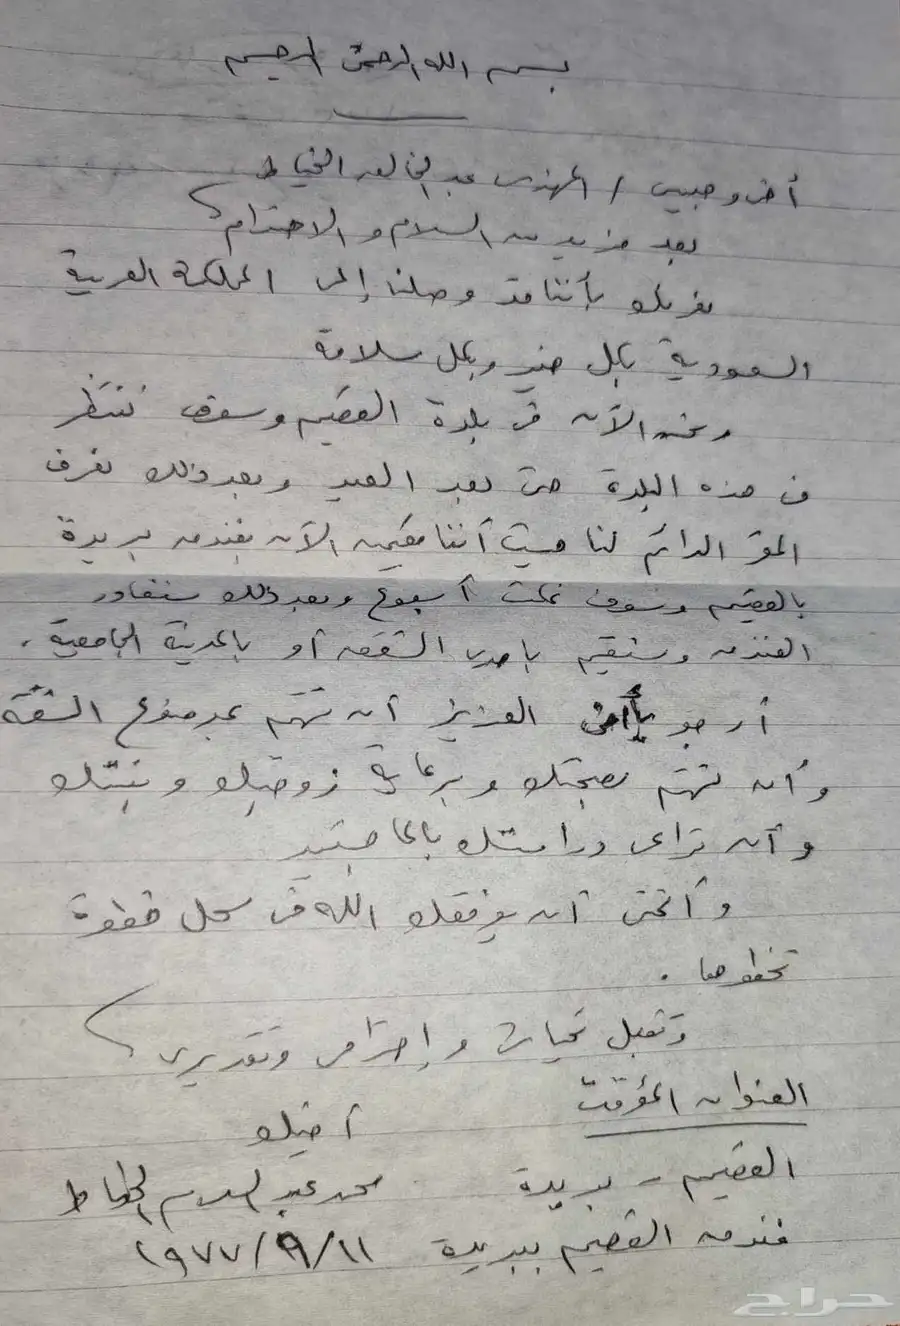 بسم الله الرحمن الرحيم
أخي وحبيبي / المهندس عبد الخالق الخياط
بعد مزيد من السلام والاحترام
نفيدك بأننا قد وصلنا إلى المملكة العربية
السعودية بكل خير وبكل سلامة
ونحن الآن في بلدة القصيم وسوف ننتظر
في هذه البلدة حتى بعد العيد وبعد ذلك نعرف
المقر الدائم لنا حيث أننا مقيمين الآن بفندق بريدة
بالقصيم وسوف نمكث أسبوع وبعد ذلك سنغادر
الفندق وسنقيم بإحدى الشقق أو بالمدينة الجامعية .
أرجو يا أخي العزيز أن تهتم بموضوع الشقة
وأن تهتم بصحتك وبرعاية زوجتك وبنتك
وأن تراعى دراستك بالماجستير
وأتمنى أن يوفقك الله في كل خطوة
تخطوها .
وتقبل تحياتي وإحترامي وتقديري
العنوان المؤقت
أخيك
القصيم - بريدة
محمد عبد السلام الخياط
فندق القصيم ببريدة
١٩٧٧/٩/١١
حراج